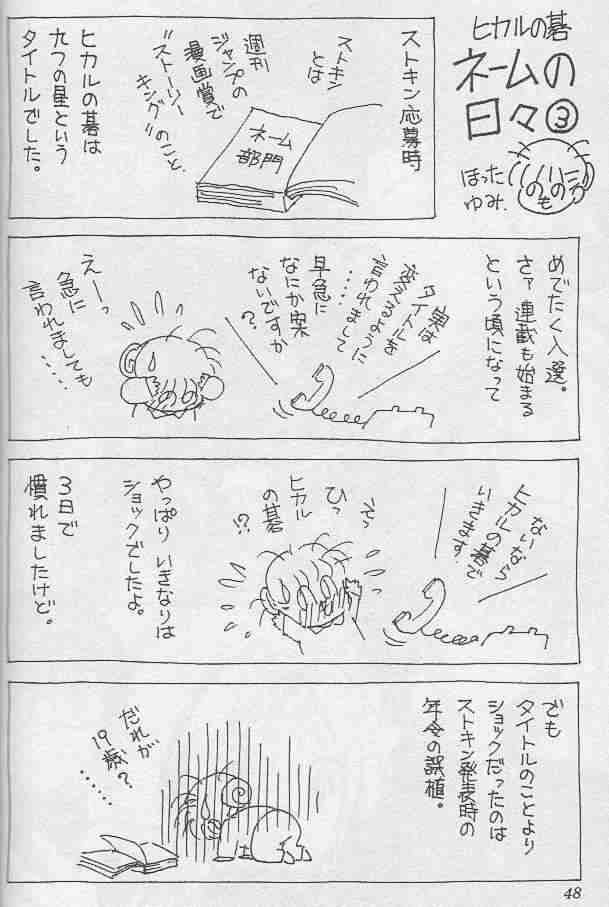 ヒカルの碁
ネームの
日々③
ほった
ゆみ.
ストキン応募時
ネーム
部門
ストキン
とは
週刊
ジャンプの
漫画賞で
“ストーリー
キング”のこと.
ヒカルの碁は
九つの星という
タイトルでした。
めでたく入選。
さァ連載も始まる
という頃になって
実は
タイトルを
変えるように
言われまして
・・・・・
早急に
なにか案
ないですか
?
えーっ
急に
言われましても
・・・・・
ないなら
ヒカルの碁で
いきます.
えっ
ひっ
ヒカル
の碁
!?
やっぱり いきなりは
ショックでしたよ。
3日で
慣れましたけど。
でも
タイトルのことより
ショックだったのは
ストキン発表時の
年令の誤植。
だれが
19歳?
・・・・・・
48